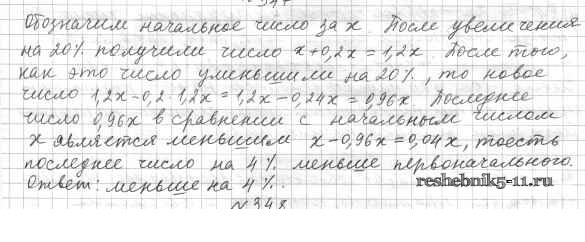 Обозначим начальное число за x. После увеличения
на 20% получили число x+0,2x=1,2x. После того,
как это число уменьшили на 20%, то новое
число 1,2x-0,2·1,2x=1,2x-0,24x=0,96x. Последнее
число 0,96x в сравнении с начальным числом
x является меньшим x-0,96x=0,04x, тоесть
последнее число на 4% меньше первоначального.
Ответ: меньше на 4%.
reshebnik5-11.ru
№348